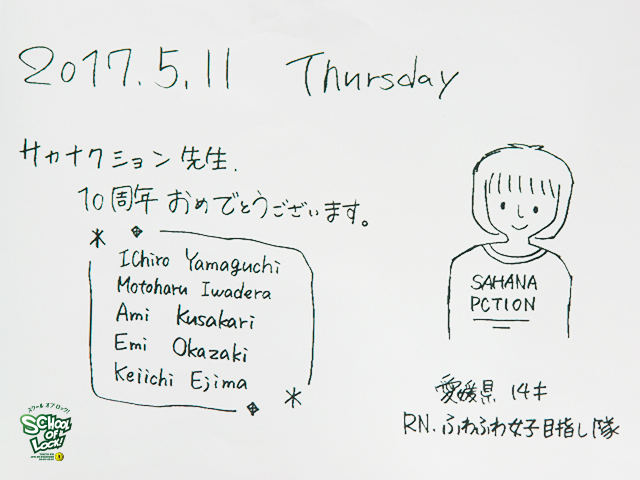 2017.5.11 Thursday
サカナクション先生.
10周年おめでとうございます。
IChiro Yamaguchi
Motoharu Iwadera
Ami Kusakari
Emi Okazaki
Keiichi Ejima
SAHANA
PCTION
愛媛県 14才
RN.ふわふわ女子目指し隊
スクール オブ ロック!
SCHOOL
OF
LOCK!